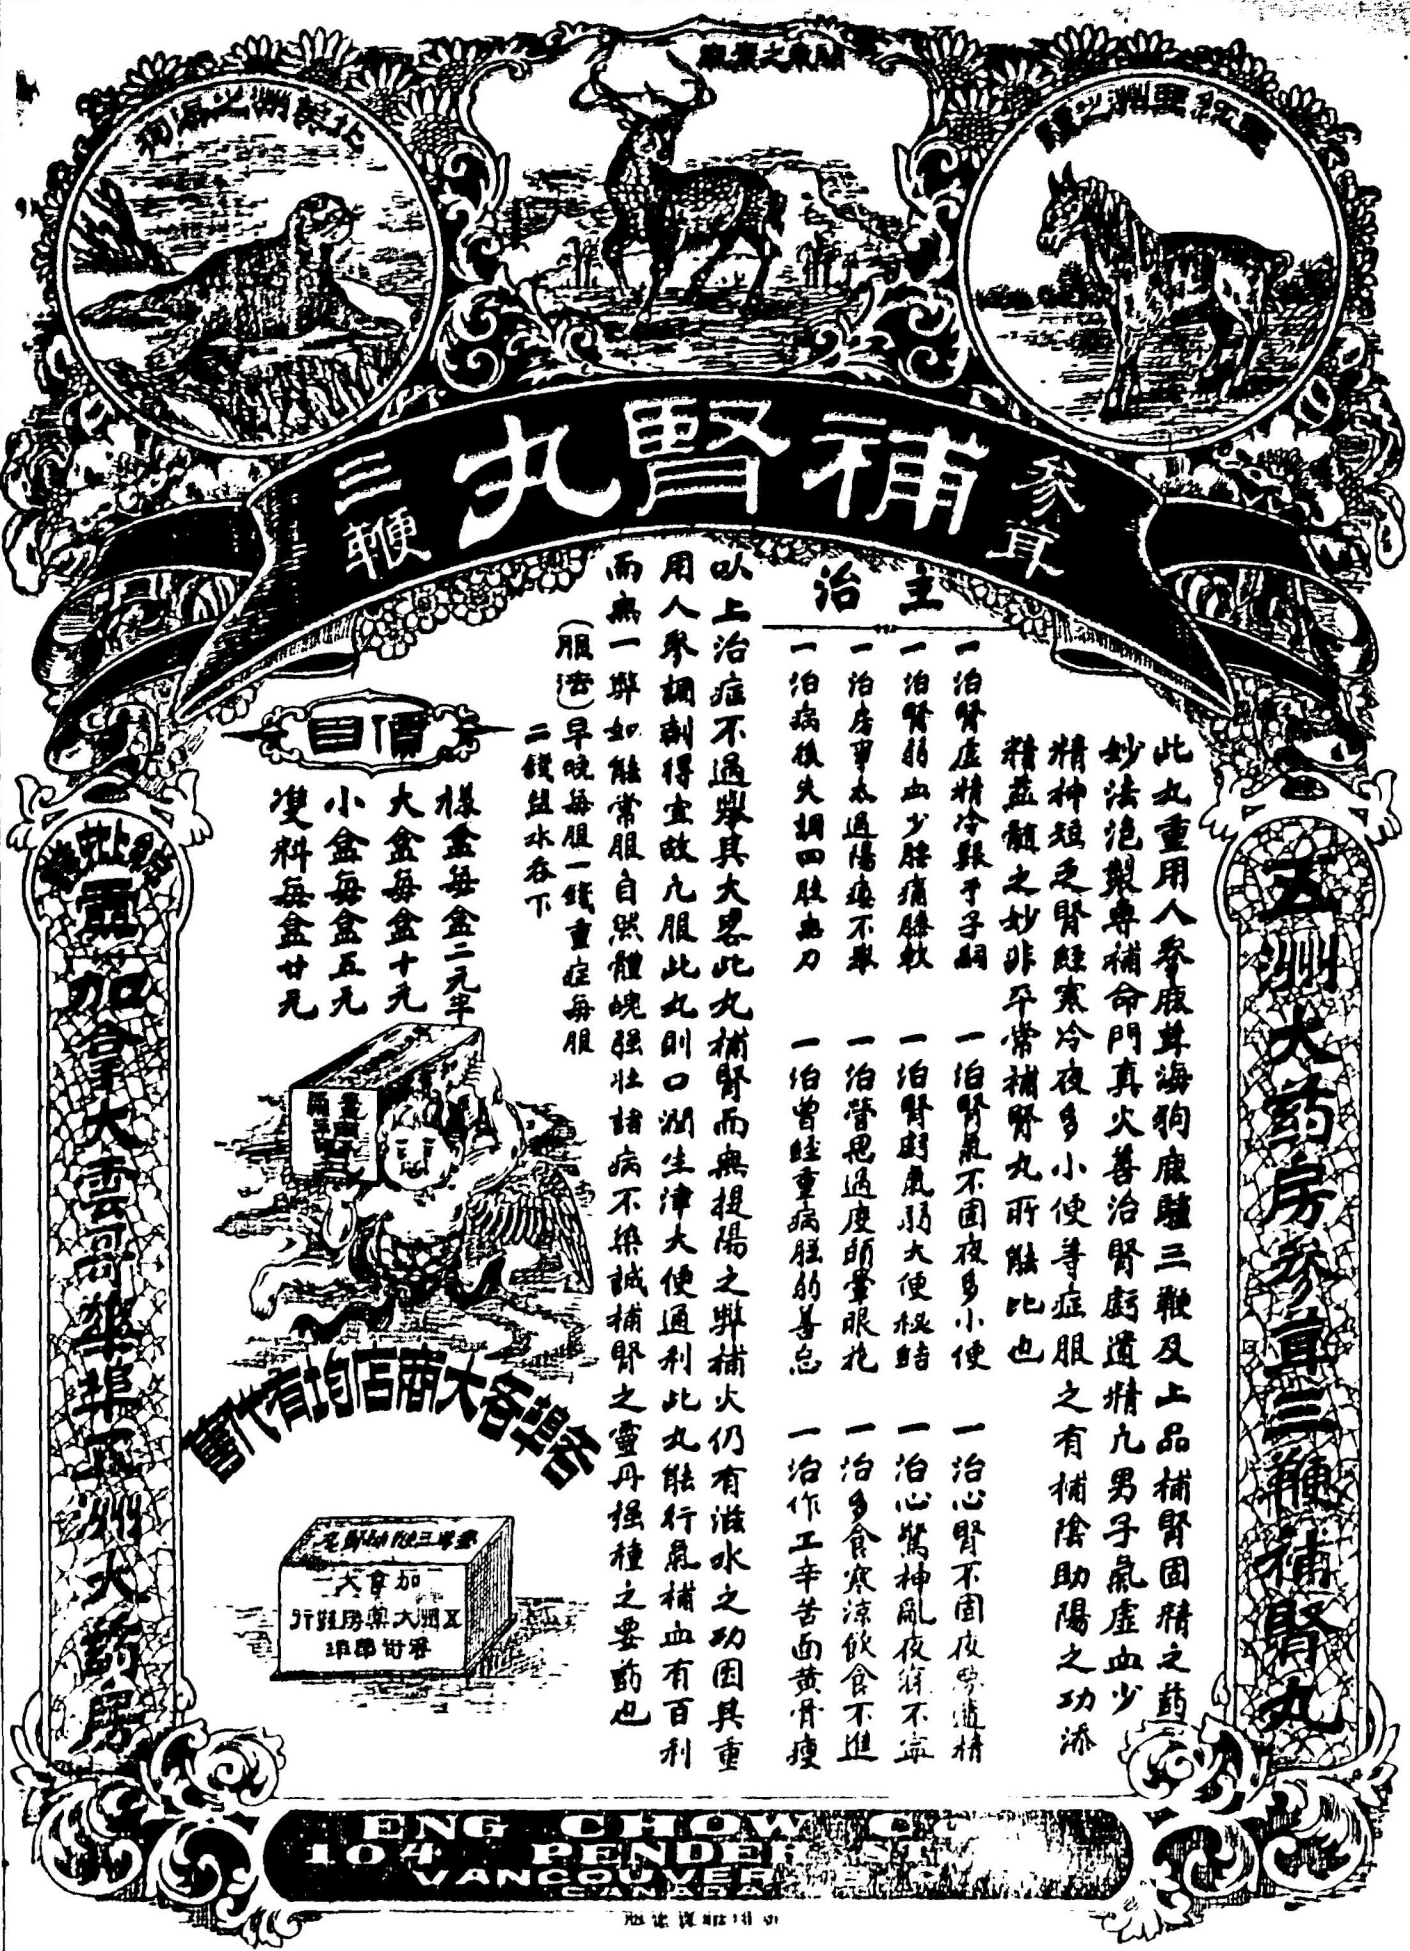 關東之梅鹿
北美洲之海狗
參茸
補腎丸
三鞭
五洲大药房參茸三鞭補腎丸
此丸重用人參鹿茸海狗鹿驢三鞭及上品補腎固精之药
妙法泡製專補命門真火善治腎虧遺精凢男子氣虛血少
精神短乏腎經寒冷夜多小便等症服之有補陰助陽之功添
精益髓之妙非平常補腎丸所能比也
主治
一治腎虛精冷艱于子嗣
一治腎氣不固夜多小便
一治心腎不固夜夢遺精
一治腎弱血少腰痛膝軟
一治腎虧氣弱大便秘結
一治心驚神亂夜寐不寧
一治房事太過陽痿不舉
一治營思過度頭暈眼花
一治多食寒涼飲食不進
一治病後失調四肢無力
一治曾經重病胆弱善忘
一治作工辛苦面黄骨瘦
以上治症不過舉其大畧此丸補腎而無提陽之弊補火仍有滋水之功因其重
用人參調劑得宜故凢服此丸則口潤生津大便通利此丸能行氣補血有百利
而無一弊如能常服自然體魄强壯諸病不染誠補腎之靈丹種種之要药也
(服法)早晚每服一錢重症每服
二錢塩水吞下
價目
樣盒每盒二元半
大盒每盒十元
小盒每盒五元
雙料每盒廿元
各埠各大商店均有代售
加拿大
五洲大藥房發行
雲哥華埠
加拿大雲哥華埠五洲大药房
ENG CHOW
104 PENDER ST
VANCOUVER
CANADA